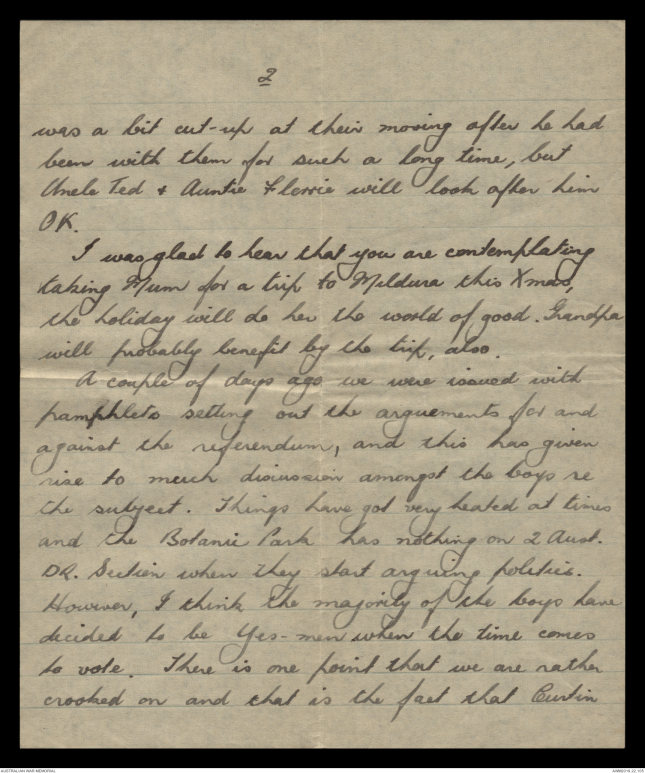 2
was a bit cut-up at their moving after he had
been with them for such a long time, but
Uncle Ted & Auntie Florrie will look after him
OK.
I was glad to hear that you are contemplating
taking Mum for a trip to Mildura this Xmas,
the holiday will do her the world of good. Grandpa
will probably benefit by the trip, also.
A couple of days ago we were issued with
pamphlets setting out the arguements for and
against the referendum, and this has given
rise to much discussion amongst the boys re
the subject. Things have got very heated at times
and the Botanic Park has nothing on 2 Aust.
DR. Section when they start arguing politics.
However, I think the majority of the boys have
decided to be Yes-men when the time comes
to vote. There is one point that we are rather
crooked on and that is the fact that Curtin
AUSTRALIAN WAR MEMORIAL